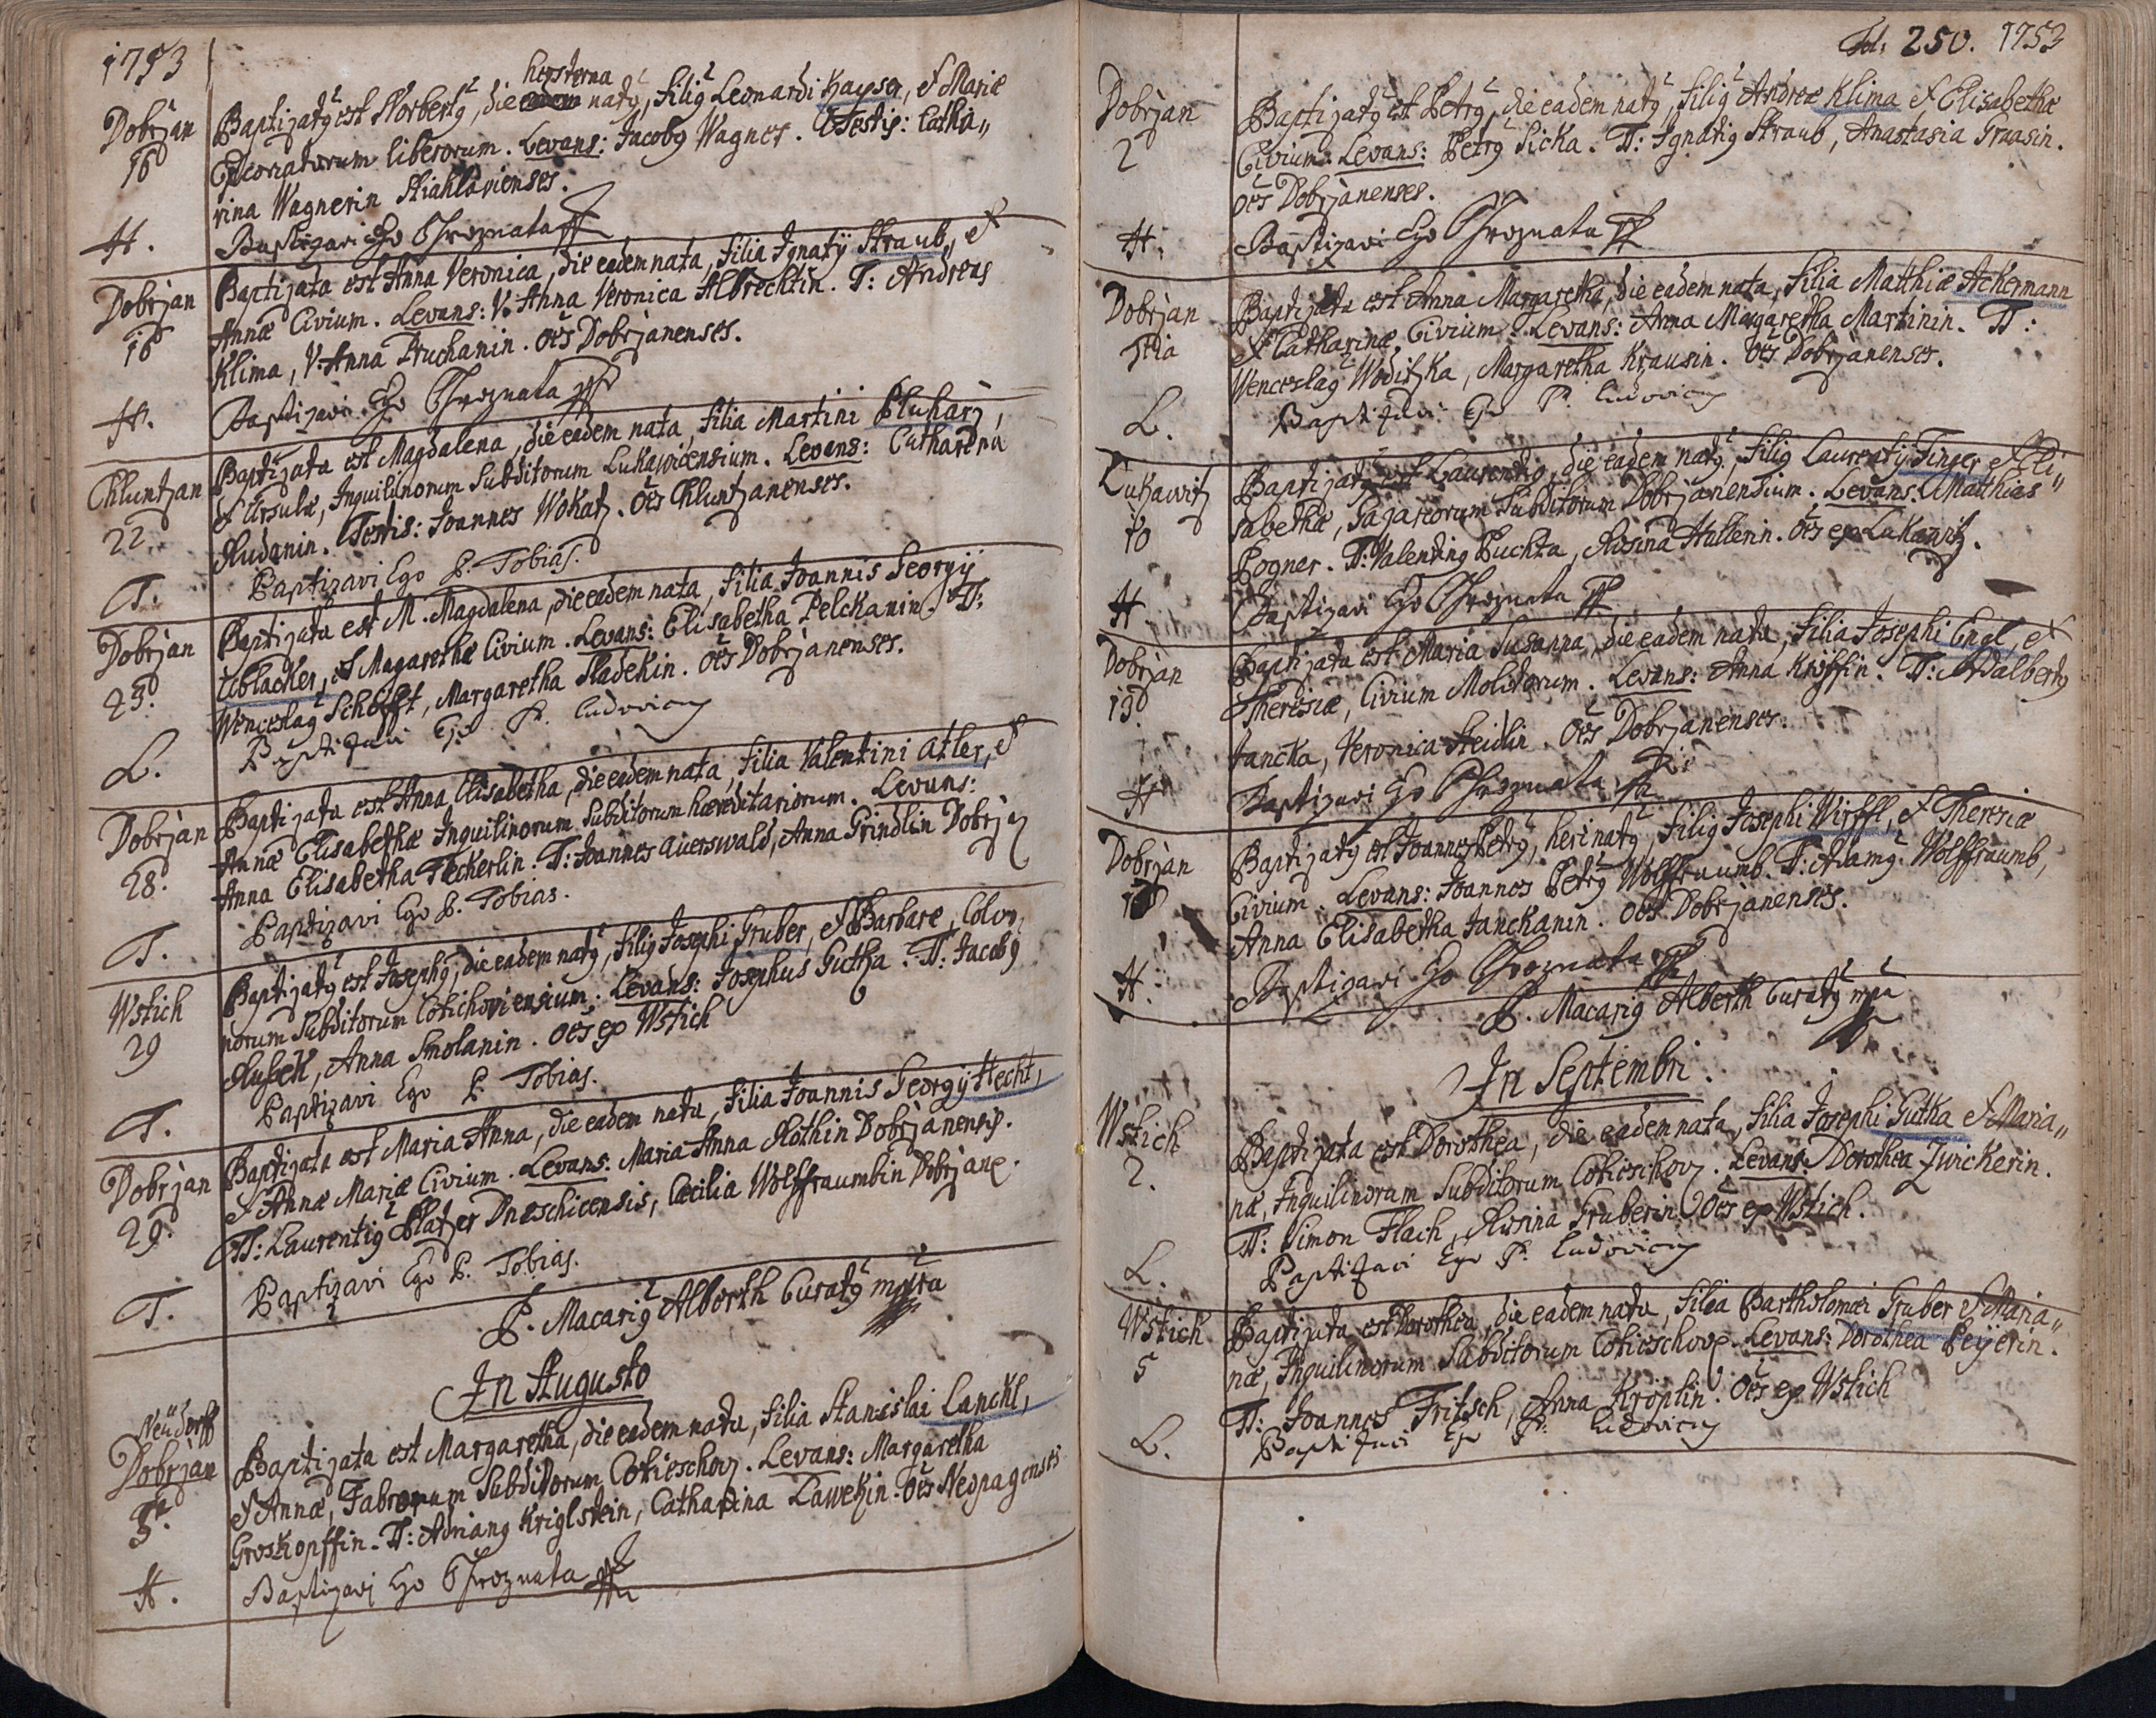 1753
Dobrzan
16
H.
hesterna
Baptizatg est Norbertg, die eadem natg, filig Leonardi Kayser, et Mariæ
Coniugatorum liberorum. Levans: Jacobg Wagner. Testis: Catha„
rina Wagnerin Stiahlavienses.
Baptizavi Ego P Hroznata
Dobrzan
18
H.
Baptizata est Anna Veronica, die eadem nata, filia Ignatÿ Straub, et
Annæ Civium. Levans: V. Anna Veronica Albrechtin. T: Andreas
Klima, V. Anna Pruchanin. oēs Dobrzanenses.
Baptizavi Ego P Hroznata
Chluntzan
22.
T.
Baptizata est Magdalena, die eadem nata, filia Martini Pluharz,
et Ursulæ, Inquilinorum Subditorum Lukawicensium. Levans: Catharina
Rudanin. Testis: Joannes Wokatz. Oēs Chluntzanenses.
Baptizavi Ego P. Tobias.
Dobrzan
25.
L.
Baptizata est M. Magdalena, die eadem nata, filia Joannis Georgÿ
Ublacker, et Magarethæ Civium. Levans: Elisabetha Pelckanin. T:
Wenceslag Schofft, Margaretha Sladekin. oēs Dobrzanenses.
Baptizavi Ego P. Ludovicg
Dobrzan
28.
T.
Baptizata est Anna Elisabetha, die eadem nata, filia Valentini Atler, et
Annæ Elisabethæ Inquilinorum Subditorum hæreditariorum. Levans:
Anna Elisabetha Teckerlin. T: Joannes Auerswald, Anna Grindlin Dobrzaz
Baptizavi Ego P. Tobias.
Wstich
29
T.
Baptizatg est Josephg, die eadem natg, filig Josephi Gruber, et Barbaræ, Colo„
norum Subditorum Cotichoviensium. Levans: Josephus Gutha. T: Jacobg
Russek, Anna Smolanin. oēs ex Wstich
Baptizavi Ego P. Tobias.
Dobrzan
29.
T.
Baptizata est Maria Anna, die eadem nata, filia Joannis Georgÿ Hecht,
et Annæ Mariæ Civium. Levans: Maria Anna Rothin Dobrzanensis.
T: Laurentig Platzer Dneschicensis, Cæcilia Wolffraumbin Dobrzane.
Baptizavi Ego P. Tobias.
P. Macarig Alberth Curatg mpra
In Augusto
Neüdorff
Dobrzan
H.
Baptizata est Margaretha, die eadem nata, filia Stanislai Lanckl,
et Annæ, Fabrorum Subditorum Cotieschovz. Levans: Margaretha
Groskopffin. T: Adriang Kriglstein, Catharina Lawekin. oēs Neopagenses
Baptizavi Ego P Hroznata
Fol: 250. 1753
Dobrzan
2
H.
Baptizatg est Petrg, die eadem natg, filig Andreæ Klima et Elisabethæ
Civium. Levans: Petrg Sicka. T: Ignatig Straub, Anastasia Grasin.
oēs Dobrzanenses.
Baptizavi Ego P Hroznata
Dobrzan
L.
Baptizata est Anna Margaretha, die eadem nata, filia Matthiæ Ackermann
et Catharinæ Civium. Levans: Anna Margaretha Martinin. T:
Wenceslag Woditzka, Margaretha Krausin. oēs Dobrzanenses.
Baptizavi Ego P. Ludovicg
Lukawitz
10
H.
Baptizatg est Laurentig, die eadem natg, filig Laurentÿ Finger et Eli„
sabethæ, Gazariorum Subditorum Dobrzanensium. Levans: Matthias
Pogner. T: Valenting Puchta, Rosina Hullerin. Oēs ex Lukawitz.
Baptizavi Ego P Hroznata
Dobrzan
13.
H
Baptizata est Maria Susanna, die eadem nata, filia Josephi Engl, et
Theresiæ, Civium Molitorum. Levans: Anna Kröffin. T: Adalbertg
Jancka, Veronica Heidlin. Oēs Dobrzanenses.
Baptizavi Ego P Hroznata
Dobrzan
H.
Baptizatg est Joannes Petrg, heri natg, filig Josephi Wirffl, et Theresiæ
Civium. Levans: Joannes Petrg Wolffraumb. T: Adamg Wolffraumb,
Anna Elisabetha Janckanin. oēs Dobrzanenses.
Baptizavi Ego P Hroznata
P. Macarig Alberth Curatg mpa
In Septembri.
Wstich
2.
L.
Baptizata est Dorothea, die eadem nata, filia Josephi Gutka et Maria„
næ, Inquilinorum Subditorum Cotieschovz. Levans: Dorothea Zurckerin.
T: Simon Flach, Rosina Gruberin. Oēs ex Wstich.
Baptizavi Ego P. Ludovicg
Wstich
5
L.
Baptizata est Dorothea, die eadem nata, filia Bartholomæi Gruber et Maria„
næ, Inquilinorum Subditorum Cotieschovz. Levans: Dorothea Peÿerin.
T: Joannes Fritsch, Anna Kröplin. Oēs ex Wstich
Baptizavi Ego P. Ludovicg